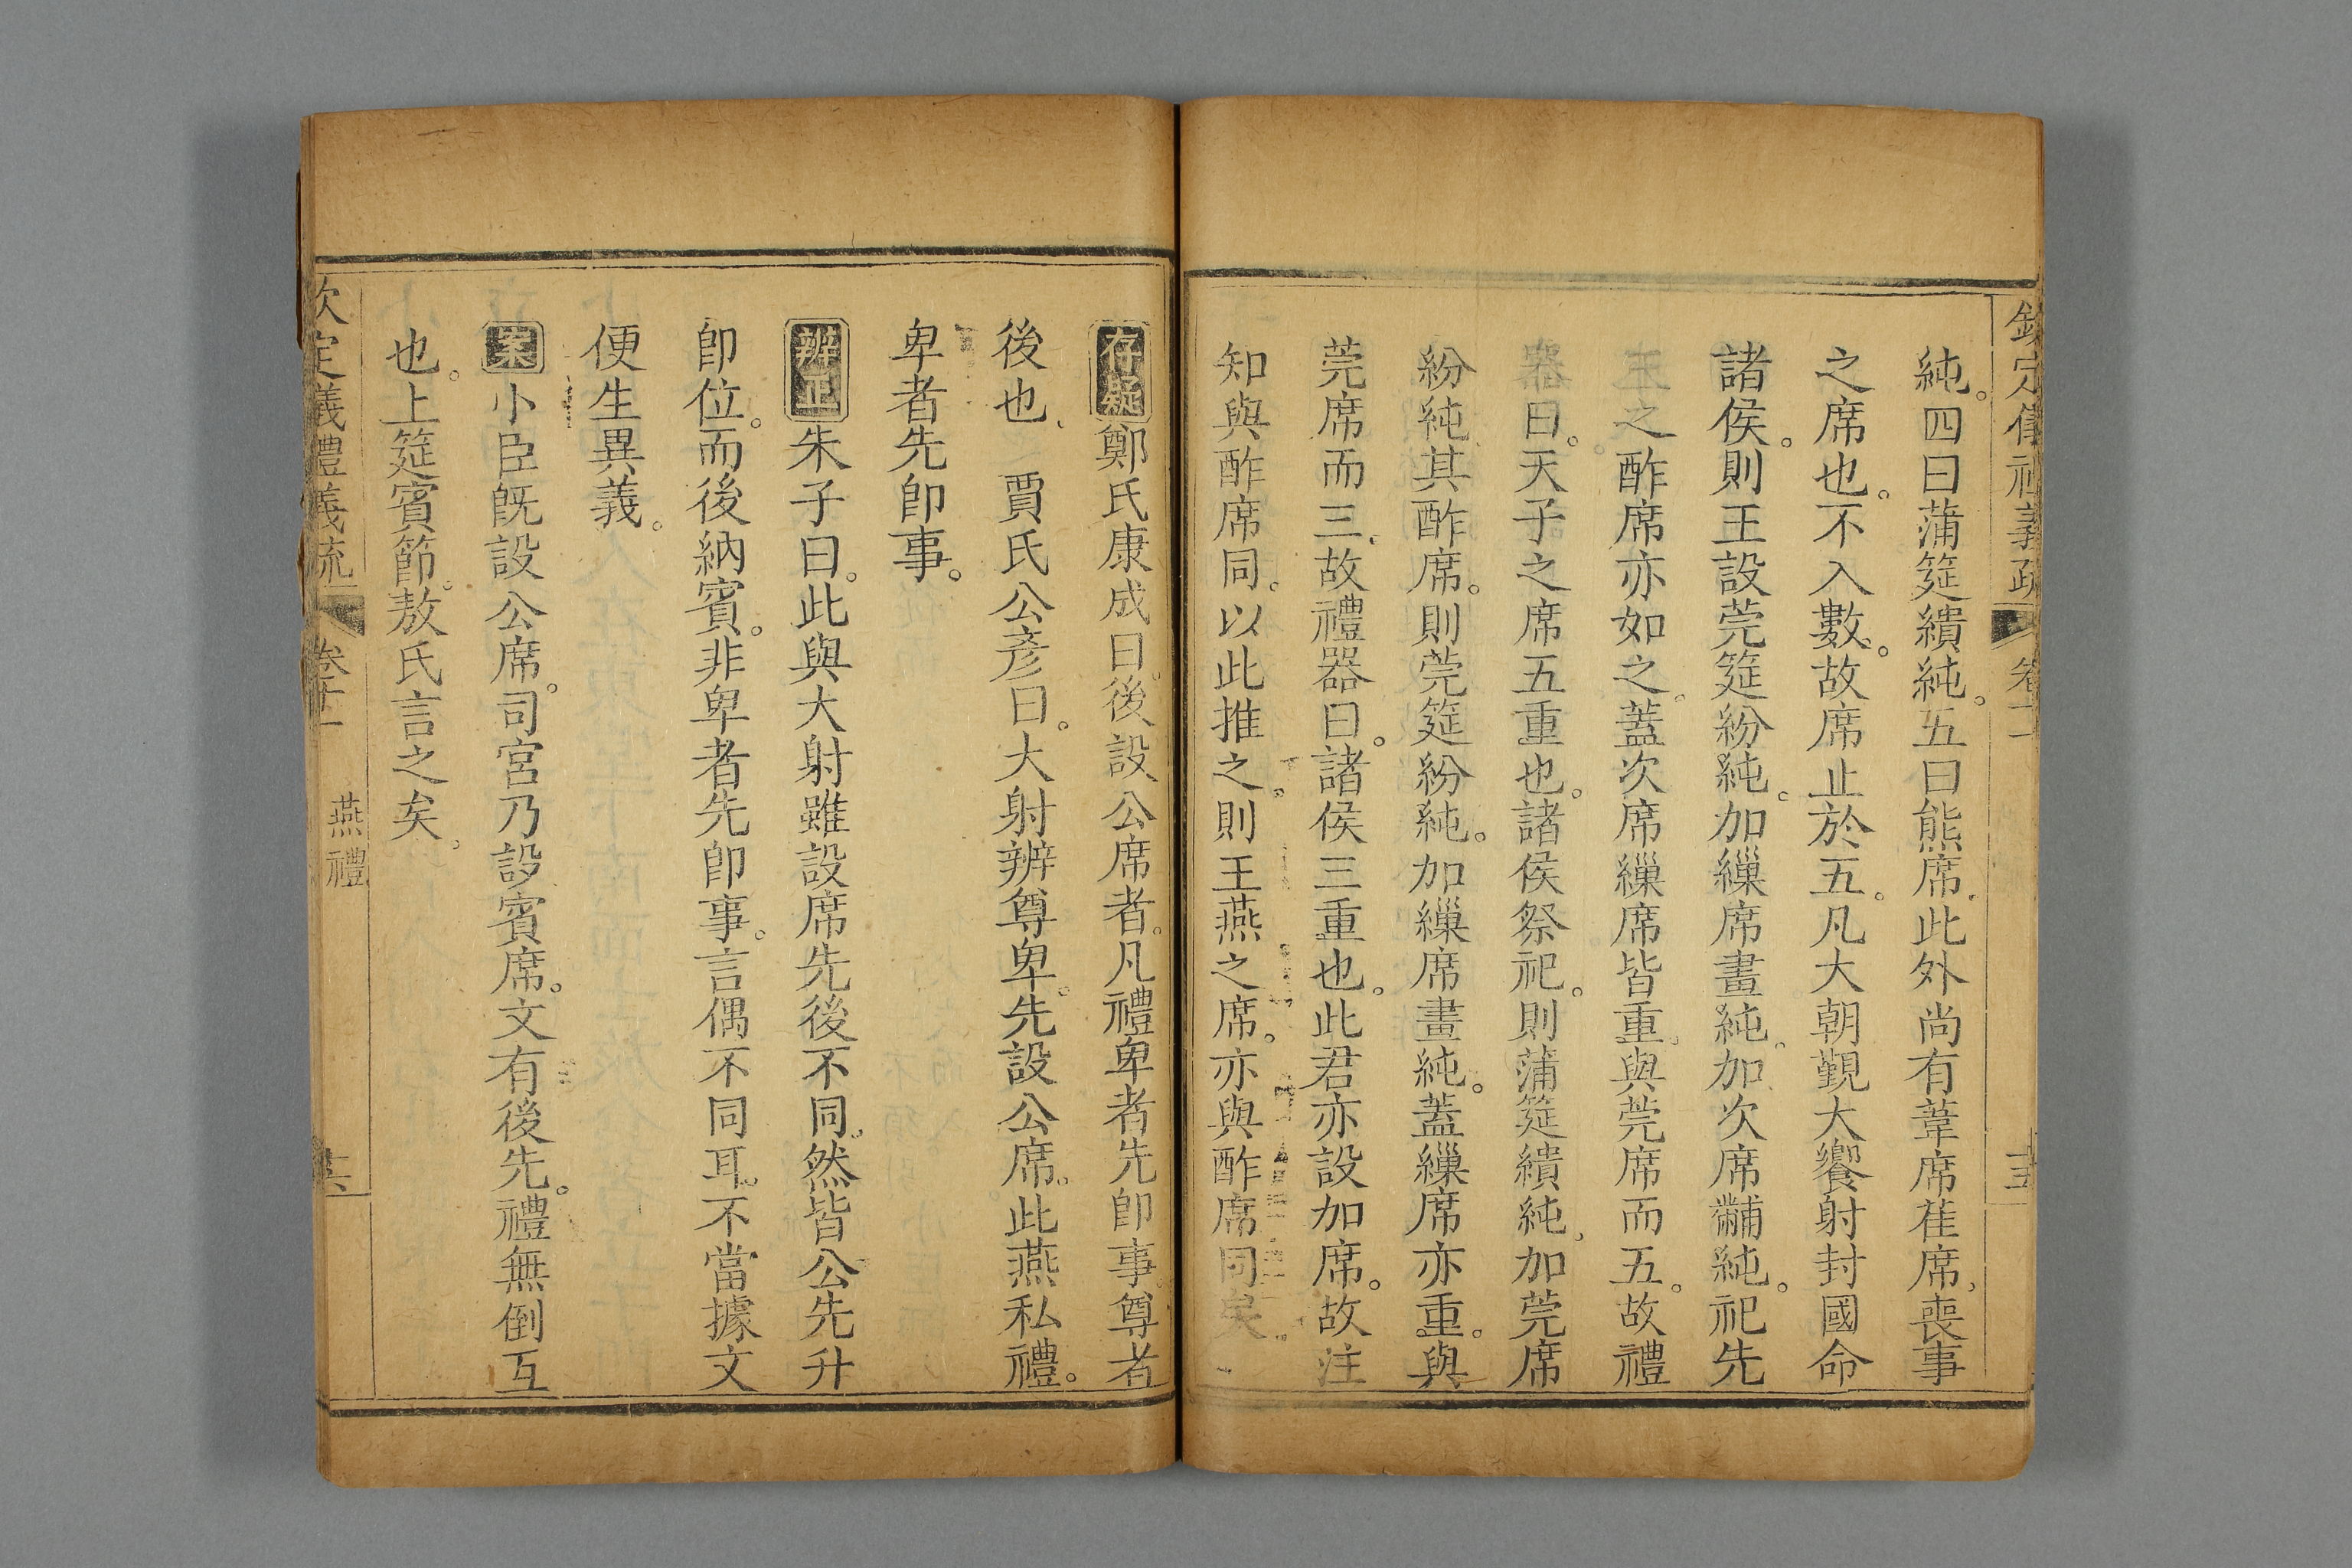 欽定儀禮義疏 卷十一 十五
純。四曰蒲筵繢純。五曰熊席。此外尚有葦席萑席、喪事
之席也。不入數。故席止於五。凡大朝覲大饗射封國命
諸侯。則王設莞筵紛純。加繅席畫純。加次席黼純。祀先
王之酢席亦如之。蓋次席繅席皆重、與莞席而五。故禮
器曰。天子之席五重也。諸侯祭祀。則蒲筵繢純、加莞席
紛純其酢席。則莞筵紛純。加繅席畫純。蓋繅席亦重。與
莞席而三、故禮器曰。諸侯三重也。此君亦設加席。故注
知與酢席同。以此推之。則王燕之席。亦與酢席同矣。
存疑鄭氏康成曰。後設公席者。凡禮卑者先卽事。尊者
後也、賈氏公彥曰。大射辨尊卑。先設公席。此燕私禮。
卑者先卽事。
辨正朱子曰。此與大射雖設席先後不同。然皆公先升
卽位。而後納賓。非卑者先卽事。言偶不同耳。不當據文
便生異義。
案小臣旣設公席。司宮乃設賓席。文有後先。禮無倒互
也。上筵賓節。敖氏言之矣。
欽定儀禮義疏 卷十一 燕禮 十六